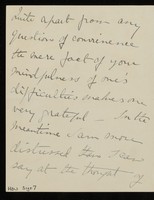 Quite apart from any
question of convenience
the mere fact of your
mindfulness of one's
difficulties makes one
very grateful — In the
meantime I am more
distressed than I can
say at the thought of